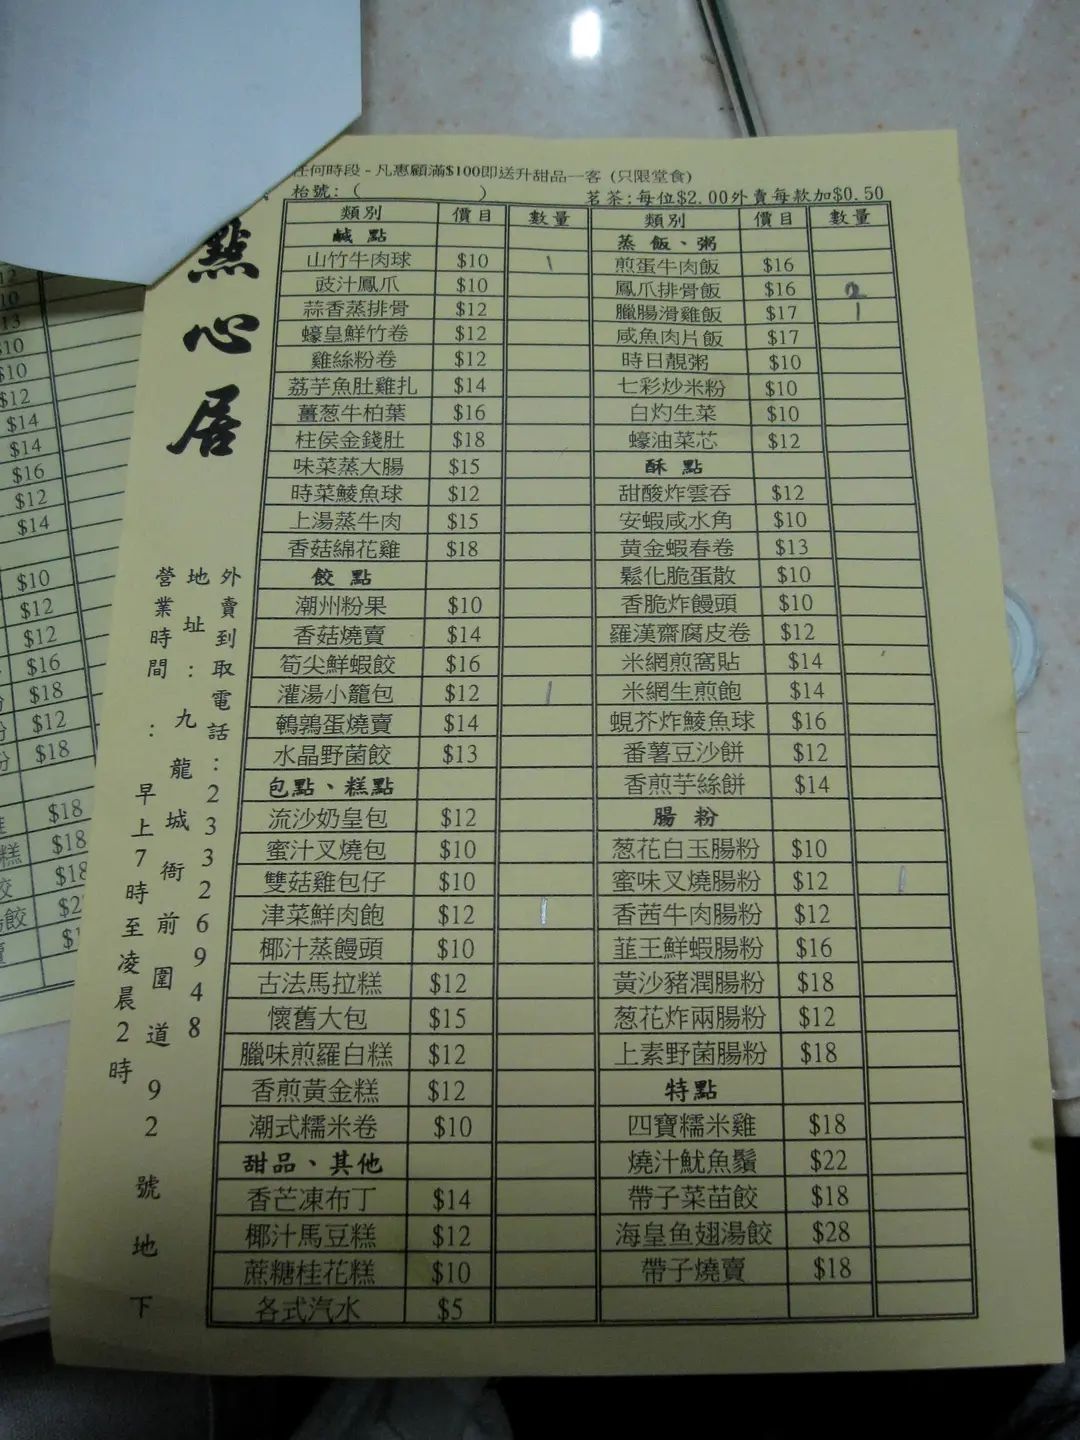 任何時段 - 凡惠顧滿$100即送升甜品一客 (只限堂食)
枱號: (          )
茗茶:每位$2.00外賣每款加$0.50
點心居
外賣到取電話:23326948
地址:九龍城衙前圍道92號地下
營業時間:早上7時至凌晨2時
類別 價目 數量
鹹點
山竹牛肉球 $10 1
豉汁鳳爪 $10
蒜香蒸排骨 $12
蠔皇鮮竹卷 $12
雞絲粉卷 $12
荔芋魚肚雞扎 $14
薑葱牛柏葉 $16
柱侯金錢肚 $18
味菜蒸大腸 $15
時菜鯪魚球 $12
上湯蒸牛肉 $15
香菇綿花雞 $18
餃點
潮州粉果 $10
香菇燒賣 $14
筍尖鮮蝦餃 $16
灌湯小籠包 $12 1
鵪鶉蛋燒賣 $14
水晶野菌餃 $13
包點、糕點
流沙奶皇包 $12
蜜汁叉燒包 $10
雙菇雞包仔 $10
津菜鮮肉飽 $12 1
椰汁蒸饅頭 $10
古法馬拉糕 $12
懷舊大包 $15
臘味煎羅白糕 $12
香煎黃金糕 $12
潮式糯米卷 $10
甜品、其他
香芒凍布丁 $14
椰汁馬豆糕 $12
蔗糖桂花糕 $10
各式汽水 $5
類別 價目 數量
蒸飯、粥
煎蛋牛肉飯 $16
鳳爪排骨飯 $16 2
臘腸滑雞飯 $17 1
咸魚肉片飯 $17
時日靚粥 $10
七彩炒米粉 $10
白灼生菜 $10
蠔油菜芯 $12
酥點
甜酸炸雲吞 $12
安蝦咸水角 $10
黄金蝦春卷 $13
鬆化脆蛋散 $10
香脆炸饅頭 $10
羅漢齋腐皮卷 $12
米網煎窩貼 $14
米網生煎飽 $14
蜆芥炸鯪魚球 $16
番薯豆沙餅 $12
香煎芋絲餅 $14
腸粉
葱花白玉腸粉 $10
蜜味叉燒腸粉 $12 1
香茜牛肉腸粉 $12
韮王鮮蝦腸粉 $16
黃沙豬潤腸粉 $18
葱花炸兩腸粉 $12
上素野菌腸粉 $18
特點
四寶糯米雞 $18
燒汁魷魚鬚 $22
帶子菜苗餃 $18
海皇鱼翅湯餃 $28
帶子燒賣 $18
$10
$12
$14
$14
$16
$12
$14
$10
$12
$12
$16
$18
$12
$18
$18
$18